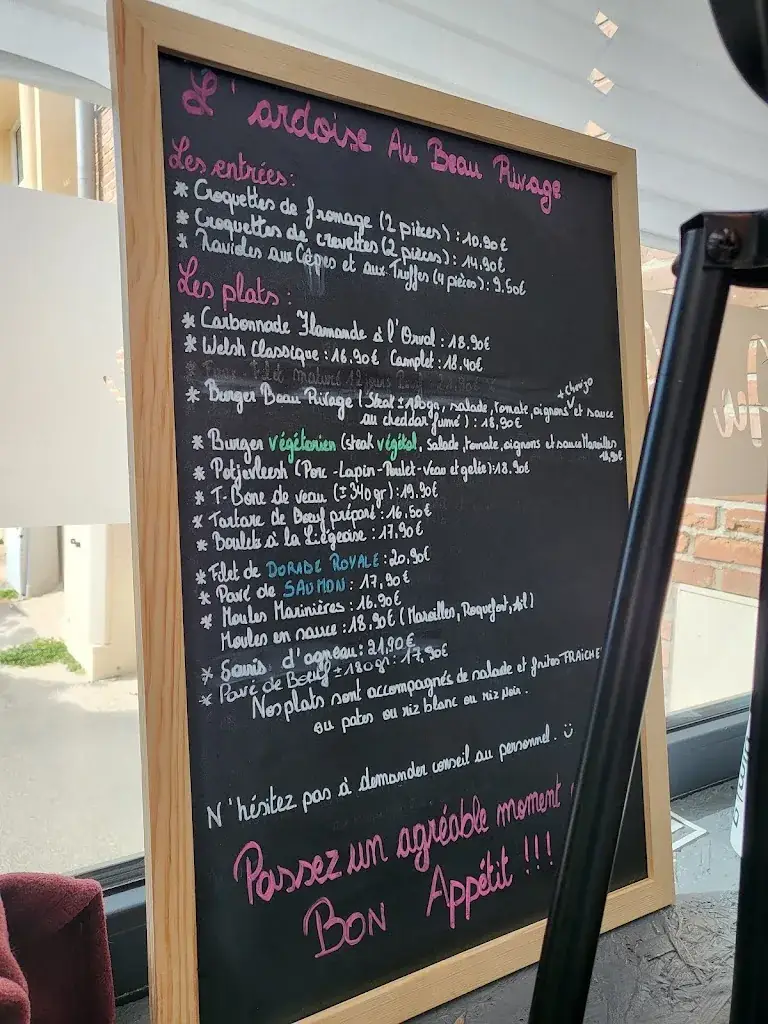 L'ardoise Au Beau Rivage
Les entrées:
* Croquettes de fromage (2 pièces) : 10.90€
* Croquettes de crevettes (2 pièces) : 14.90€
* Ravioles aux Cêpes et aux Truffes (4 pièces) : 9.50€
Les plats:
* Carbonnade Flamande à l'Orval : 18.90€
* Welsh Classique : 16.90€ Complet : 18.40€
+ Chorizo
* Burger Beau Rivage (Steak ±180gr, salade, tomate, oignons et sauce
au cheddar fumé) : 18,90€
* Burger végétarien (steak végétal, salade, tomate, oignons et sauce Maroilles
* Potjevleesh (Porc - Lapin - Poulet - Veau et gelée) : 18.90€
* T-Bone de veau (±340gr) : 19.90€
* Tartare de Boeuf préparé : 16.50€
* Boulets à la Liégeoise : 17.90€
* Filet de DORADE ROYALE : 20,90€
* Pavé de SAUMON : 17,90€
* Moules Marinières : 16.90€
Moules en sauce : 18,90€ (Maroilles, Roquefort, ail)
* Souris d'agneau : 21,90€
* Pavé de Boeuf ±180gr : 17,90€
Nos plats sont accompagnés de salade et frites FRAICHE
ou pates ou riz blanc ou riz noir.
N'hésitez pas à demander conseil au personnel. ☺
Passez un agréable moment !
BON Appétit !!!